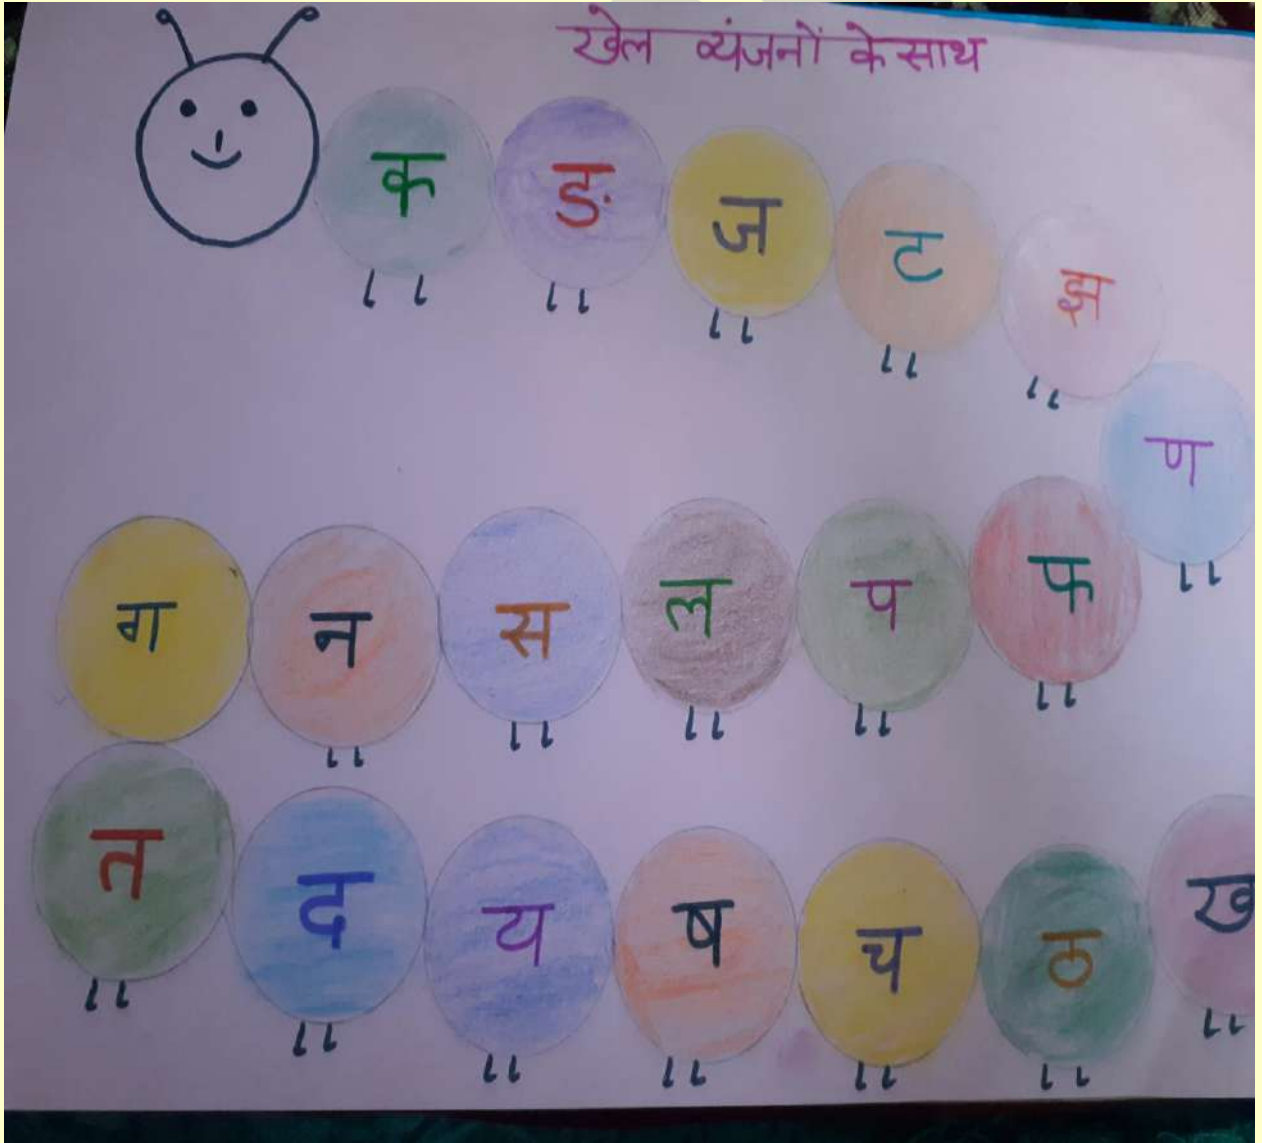 खेल व्यंजनों के साथ
क ङ ज ट झ
ण
ग न स ल प फ
त द य ष च ठ ख